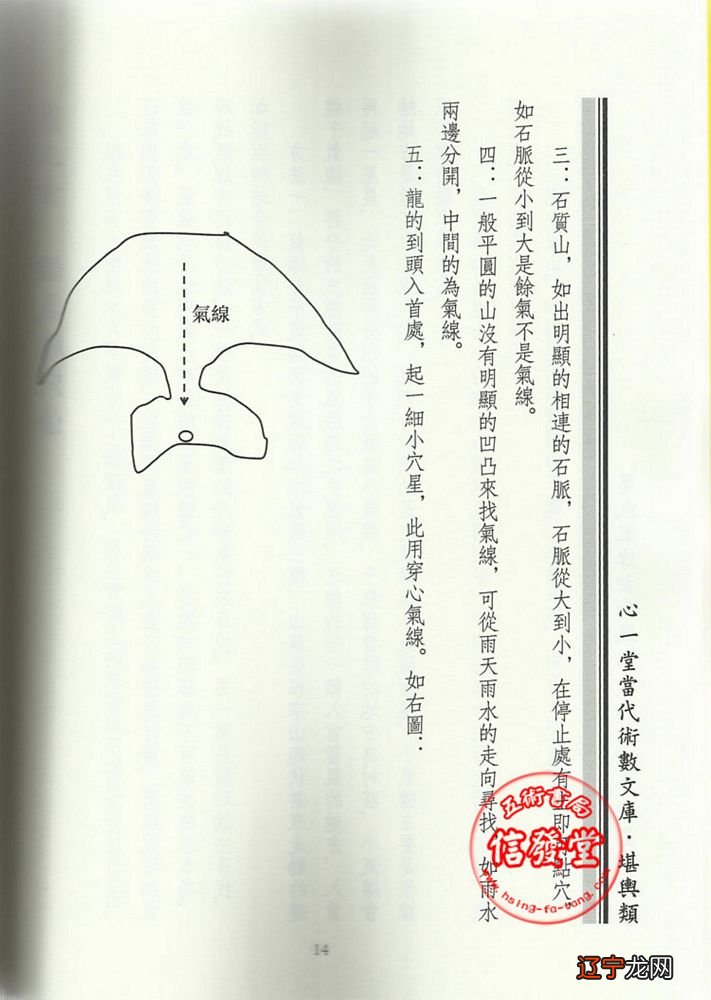 心一堂當代術數文庫·堪輿類
三：石質山，如出明顯的相連的石脈，石脈從大到小，在停止處有土即可點穴，
如石脈從小到大是餘氣不是氣線。
四：一般平圓的山沒有明顯的凹凸來找氣線，可從雨天雨水的走向尋找，如雨水
兩邊分開，中間的為氣線。
五：龍的到頭入首處，起一細小穴星，此用穿心氣線。如右圖：
氣線
五術書局
信發堂
www.hsing-fa-tang.com
14
辽宁龙网